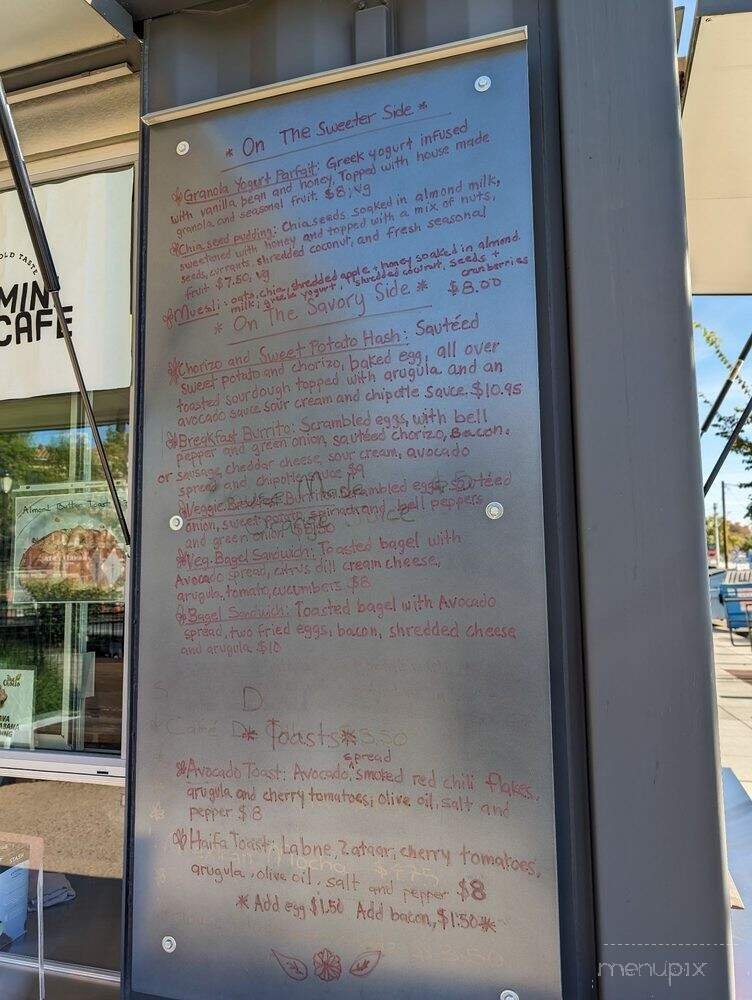 * On The Sweeter Side *
Granola Yogurt Parfait: Greek yogurt infused
with vanilla bean and honey, Topped with house made
granola and seasonal fruit. $8; vg
Chia seed pudding: Chia seeds soaked in almond milk,
sweetened with honey and topped with a mix of nuts,
seeds, currants, shredded coconut, and fresh seasonal
fruit $7.50; vg
Muesli: oats, chia, shredded apple + honey soaked in almond
milk; greek yogurt, shredded coconut, seeds +
cranberries
$8.00
* On The Savory Side *
Chorizo and Sweet Potato Hash: Sautéed
sweet potato and chorizo, baked egg, all over
toasted sourdough topped with arugula and an
avocado sauce sour cream and chipotle sauce. $10.95
Breakfast Burrito: Scrambled eggs, with bell
pepper and green onion, sautéed chorizo, Bacon.
or sausage, cheddar cheese, sour cream, avocado
spread and chipotle sauce $9
Veggie Breakfast Burrito: Scrambled eggs, Sautéed
onion, sweet potato, spinach and bell peppers
and green onion
Veg. Bagel Sandwich: Toasted bagel with
Avocado spread, citrus dill cream cheese,
arugula, tomato, cucumbers $8
Bagel Sandwich: Toasted bagel with Avocado
spread, two fried eggs, bacon, shredded cheese
and arugula $10
* Toasts *
spread
Avocado Toast: Avocado, smoked red chili flakes,
arugula and cherry tomatoes; olive oil, salt and
pepper $8
Haifa Toast: Labne, Zataar, cherry tomatoes,
arugula, olive oil, salt and pepper $8
* Add egg $1.50 Add bacon, $1.50 *
OLD TASTE
MINI
CAFE
Almond Butter Toast
menupix